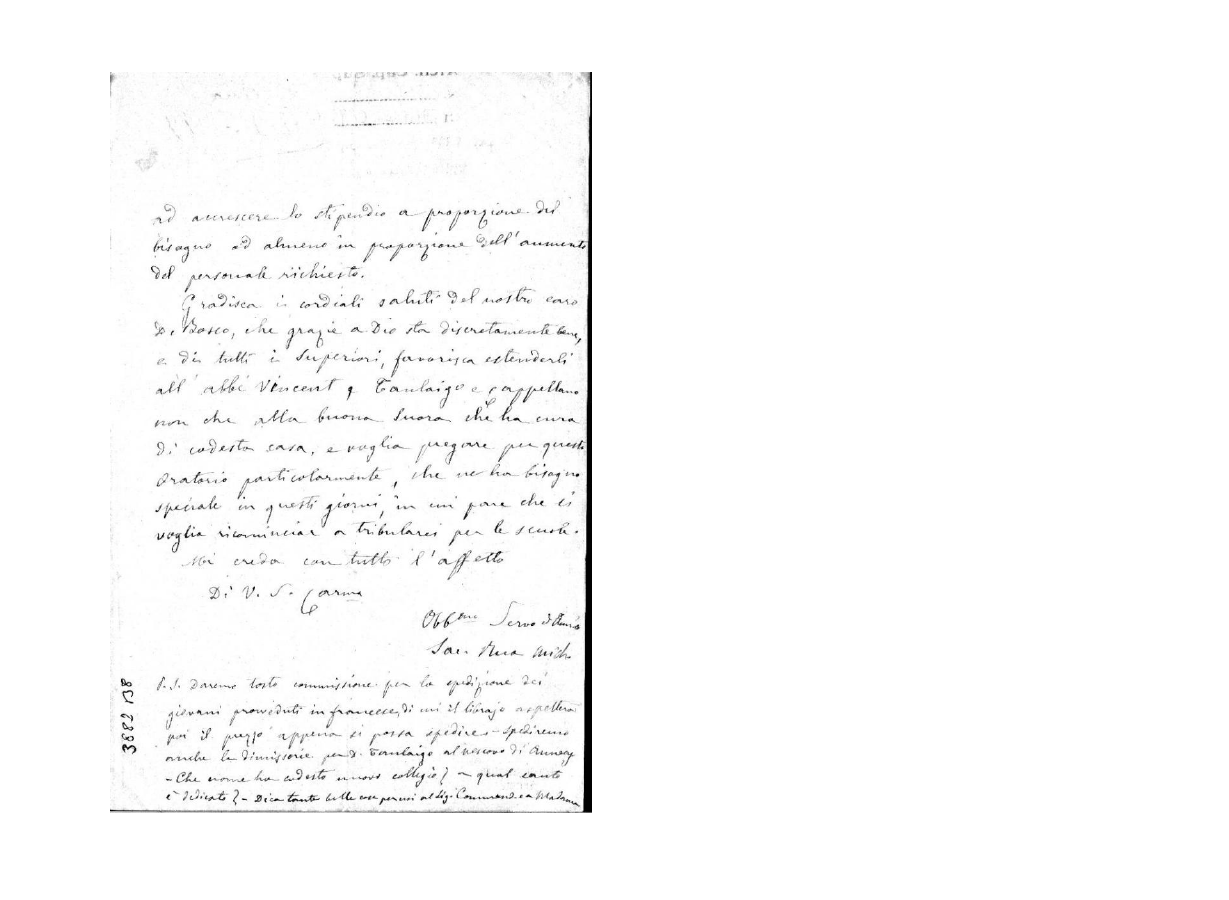 ad accrescere lo stipendio a proporzione del
bisogno od almeno in proporzione dell'aumento
del personale richiesto.
Gradisca i cordiali saluti del nostro caro
D. Bosco, che grazie a Dio sta discretamente bene,
e di tutti i Superiori, favorisca estenderli
all'abbé Vincent e cappellano
non che alla buona Suora che ha cura
di codesta casa, e voglia pregare per questo
Oratorio particolarmente, che ne ha bisogno
speciale in questi giorni, in cui pare che si
voglia ricominciar a tribularci per le scuole.
Mi creda con tutto l'affetto
Di V. S. Carma
Obbmo Servo ed Amico
Sac. Rua Mich
P.S. Daremo tosto commissione per la spedizione dei
giovani provveduti in francese, di cui il librajo aspetterà
poi il prezzo appena si possa spedire - spediremo
anche le dimissorie per D. al vescovo di Annecy
- Che nome ha codesto nuovo collegio? - a qual santo
è dedicato? - Dica tante belle cose per noi al Sig. Commend. e a Madama
3882 B8